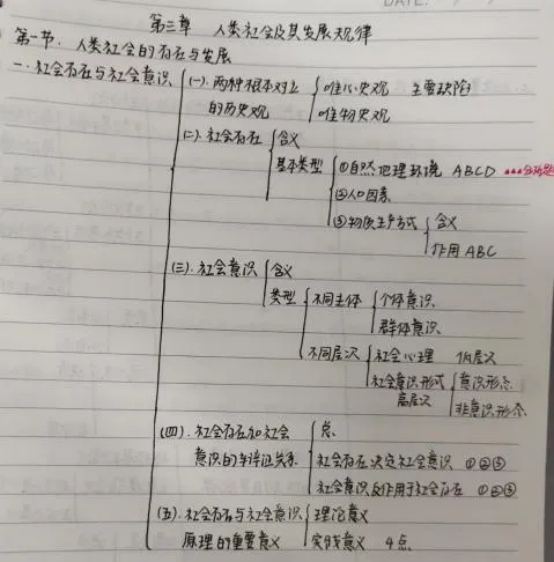 第三章 人类社会及其发展规律
第一节. 人类社会的存在与发展
一. 社会存在与社会意识
(一). 两种根本对立的历史观
唯心史观 主要缺陷
唯物史观
(二). 社会存在
含义
基本类型
①自然地理环境 ABCD
②人口因素
③物质生产方式
含义
作用 ABC
(三). 社会意识
含义
类型
不同主体
个体意识.
群体意识.
不同层次
社会心理 低层次
社会意识形式 高层次
意识形态
非意识形态
(四). 社会存在和社会意识的辩证关系
总.
社会存在决定社会意识 ①②③
社会意识反作用于社会存在 ①②③
(五). 社会存在与社会意识原理的重要意义
理论意义
实践意义 4点.